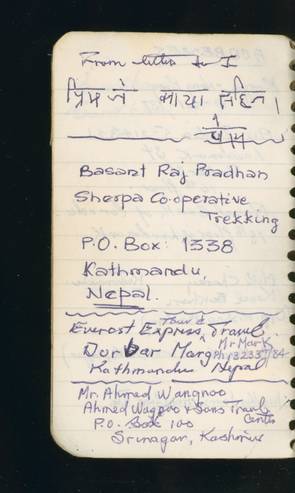 From letter to I
प्रिय जे माया सहित।
Basant Raj Pradhan
Sherpa Co-operative
Trekking
P.O. Box: 1338
Kathmandu,
Nepal.
Everest Express, Tour & Travel
Durbar Marg Mr Mark
Kathmandu Nepal
Mr. Ahmed Wangnoo
Ahmed & Sons Travel
P.O. Box 100
Srinagar, Kashmir